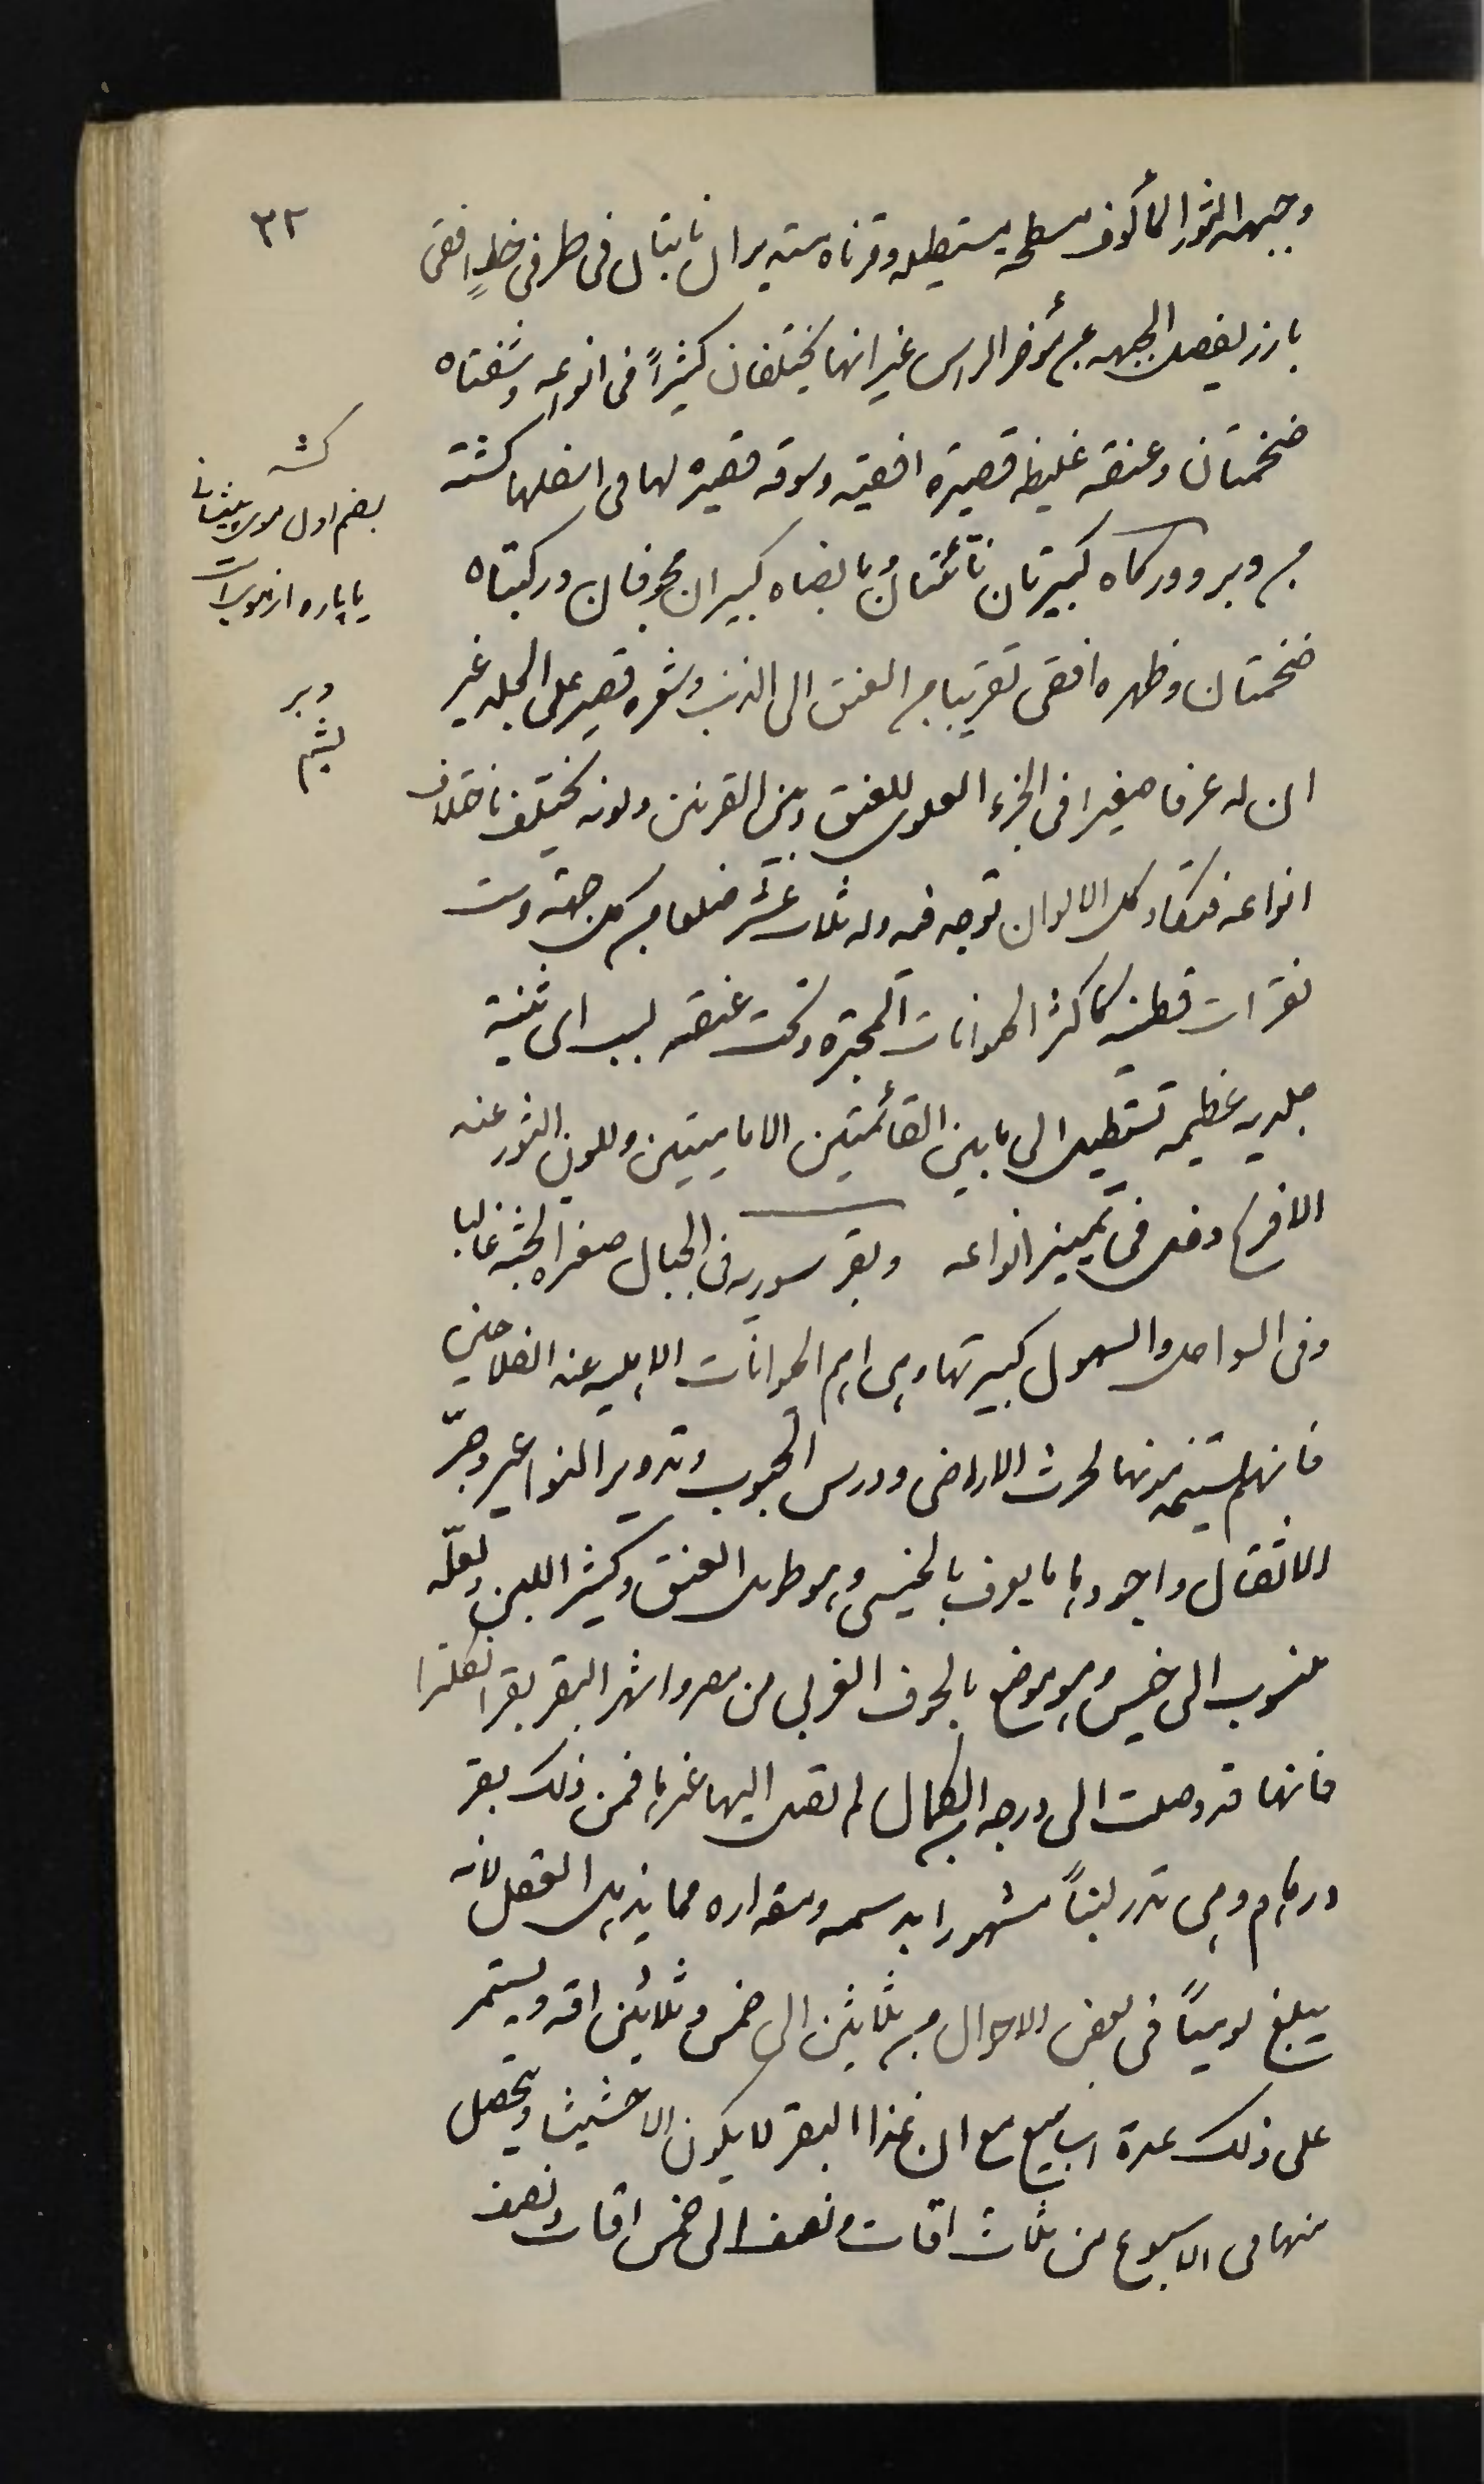 ٣٢
وجبهة الثور المألوف مسطحه مستطيله وقرناه مستديران نابتان فى طرفى خطٍ افقى
بارز يفصل الجبهه عن مُؤخر الراس غير انهما يختلفان كثيراً فى انواعه وشفتاه
ضخمتان وعنقه غليظه قصيرة افقيه وسوقه قصيره لها فى اسفلها كشتة
من وبر ووركاه كبيرتان ناتئتان وما بضاه كبيران مجوفان وركبتاه
ضخمتان وظهره افقى تقريبا من العنق الى الذنب وشعره قصير على الجلد غير
ان له عرفا صغيرا فى الجزء العلوى للعنق وبين القرنين ولونه يختلف باختلاف
انواعه فتكاد كل الالوان توجد فيه وله ثلاث عشرَ ضلعا من كل جهة وست
فقرات قطنيه كاكثر الحيوانات المجترّه وتحت عنقه لبب اى ثنية
جلديه عظيمه تستطيل الى ما بين القائمتين الاماميتين وللون الثور عند
الافرنج دخل فى تمييز انواعه وبقر سوريه فى الجبال صغيرة الجثه غالبا
وفى السواحل والسهول كبيرتها وهى اهم الحيوانات الاهليه عند الفلاحين
فانهم يستخدمونها لحرث الاراضى ودرس الحبوب وتدوير النواعير وجرّ
الاثقال واجودها ما يعرف بالخيسى وهو طويل العنق وكثير اللبن ولعلّه
منسوب الى خيس وهو موضع بالحوف الغربى من مصر واشهر البقر بقر انكلترا
فانها قد وصلت الى درجه من الكمال لم تصل اليها غيرها فمن ذلك بقر
درهام وهى تدر لبناً مشهورا بدسمه ومقداره مما يذهل العقل لانه
يبلغ يومياً فى بعض الاحوال من ثلاثين الى خمس وثلاثين اقه ويستمر
على ذلك عدة اسابيع مع ان غذا البقر لا يكون الا حشيشا ويحصل
منها فى الاسبوع من ثلاث اقات ونصف الى خمس اقات ونصف
كشه
بضم اول موى پيشانى
يا پاره از موى است
وبر
پشم